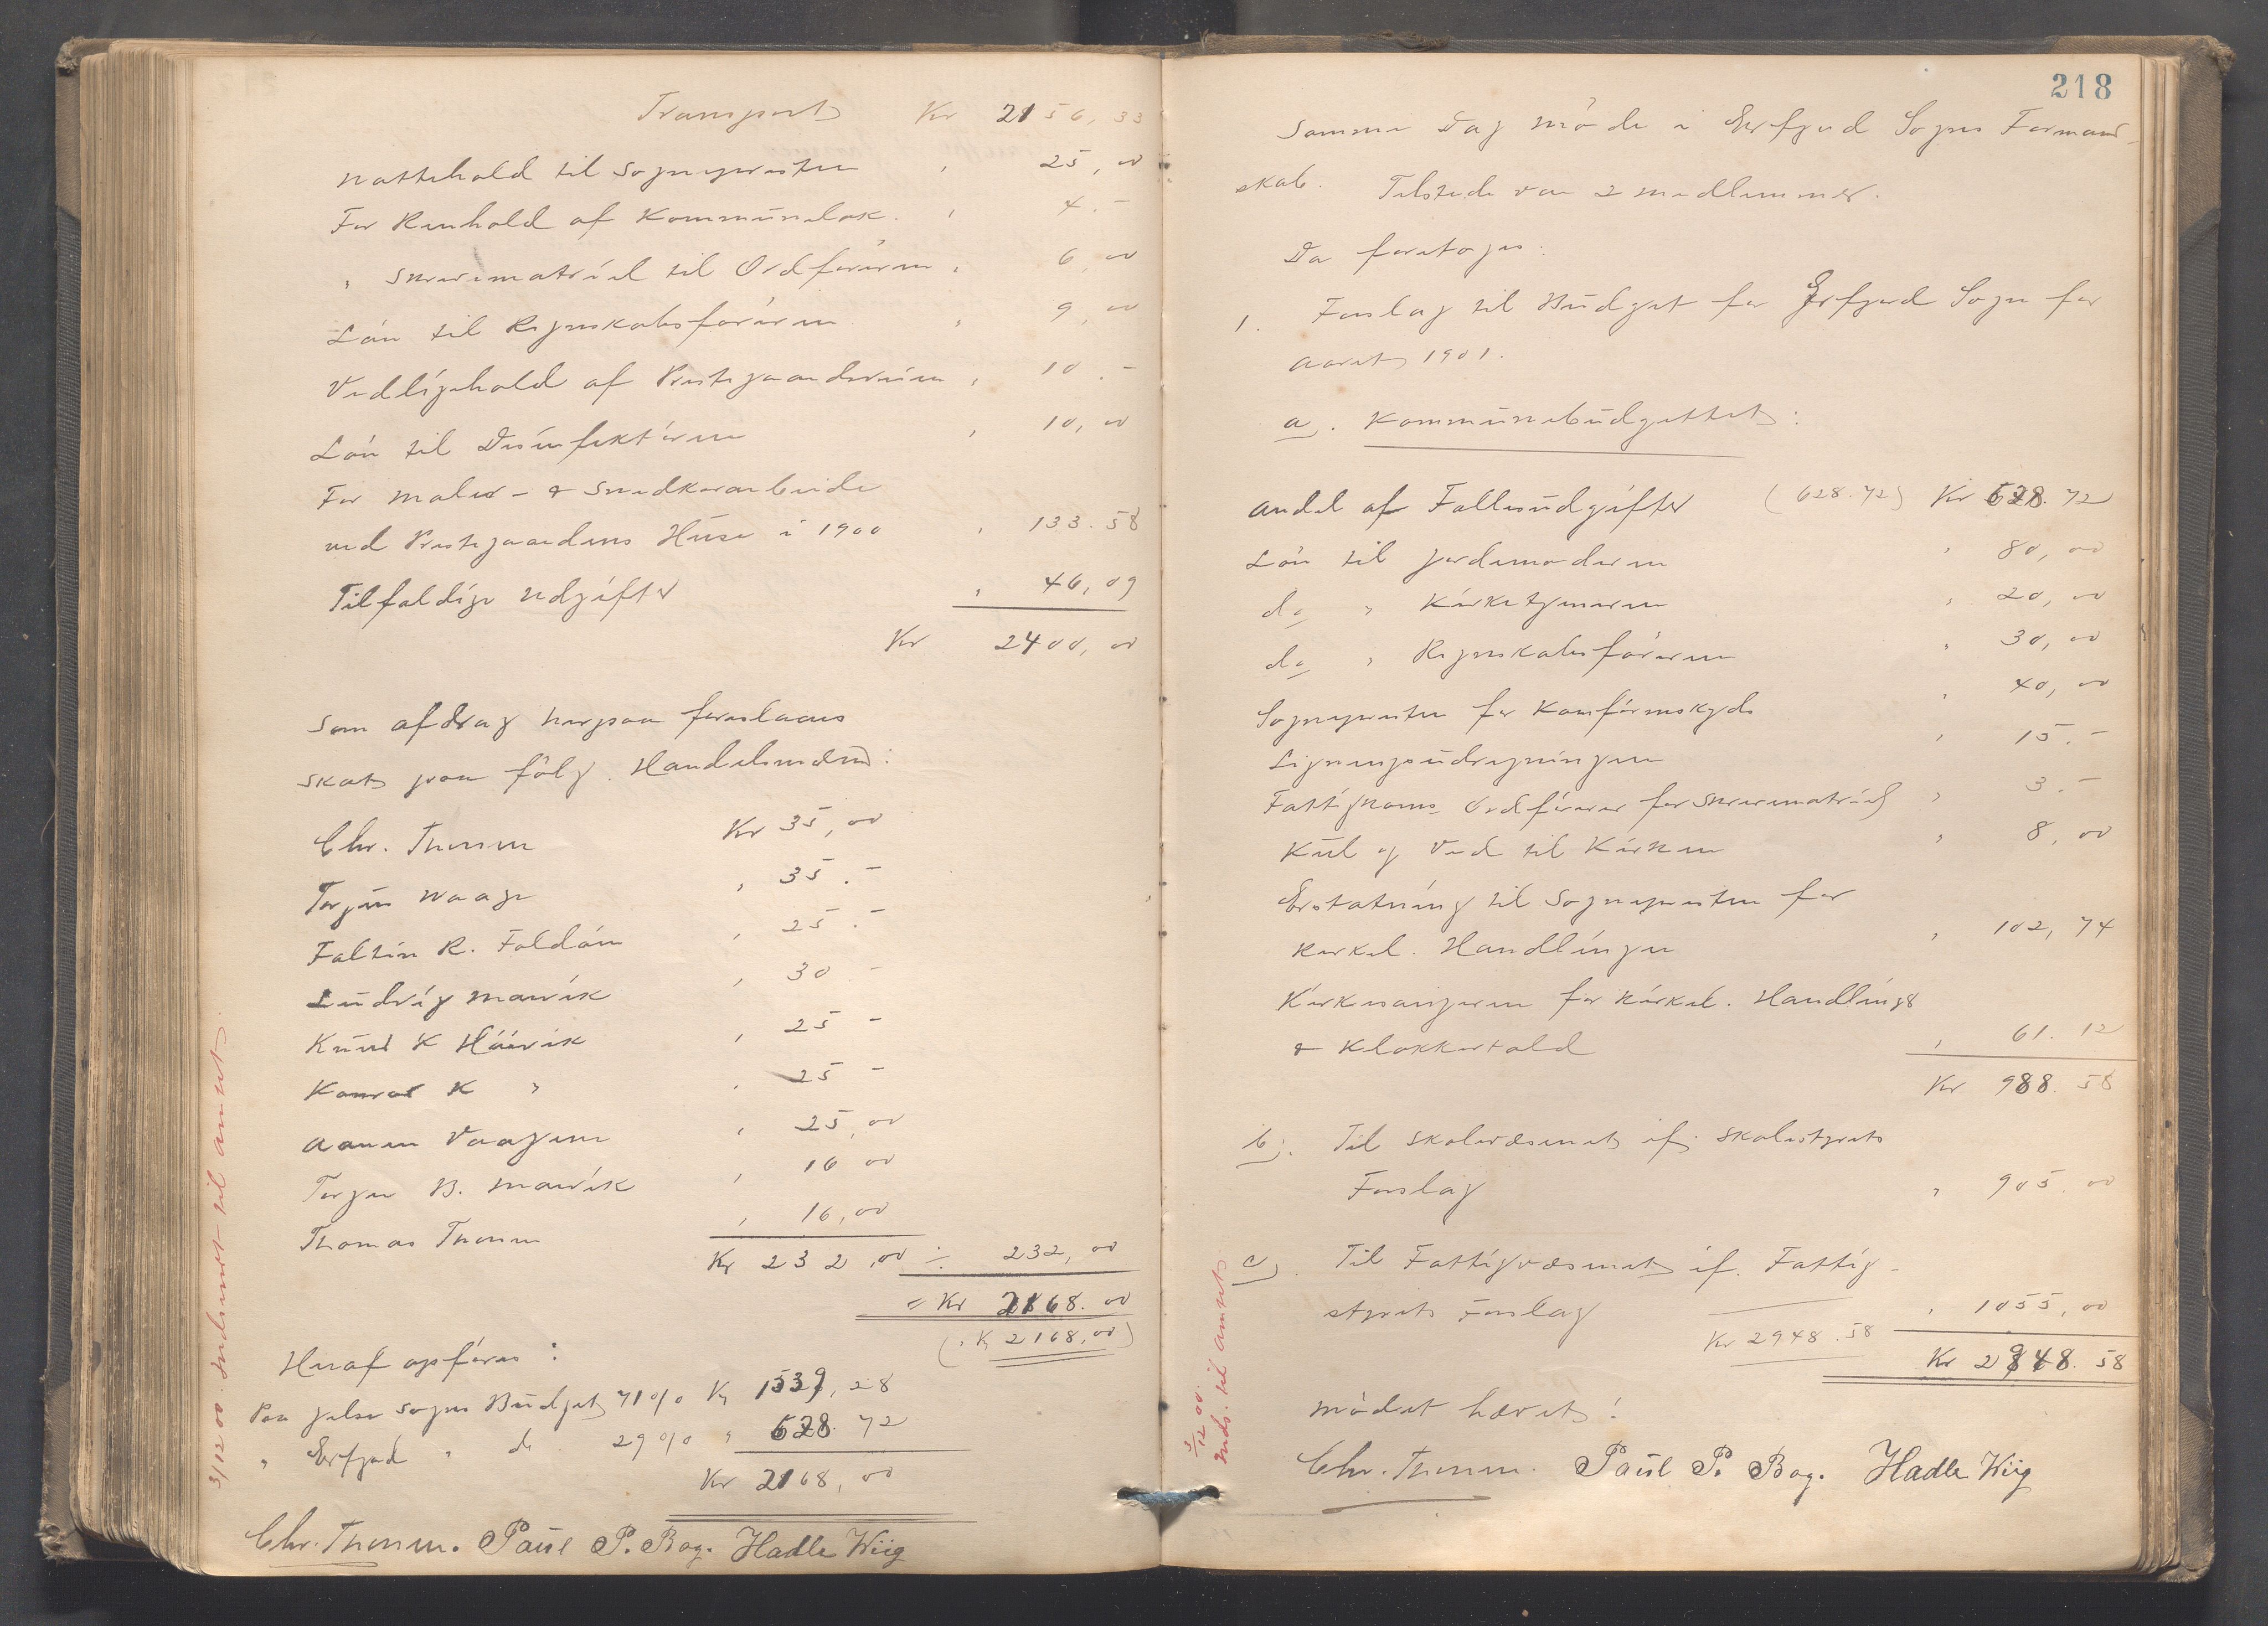 Transport Kr 2156,33
Nattehold til Sognepresten " 25,00
For Renhold af Kommunelok. " 4.-
" Skrivematriel til Ordføreren " 6,00
Løn til Regnskabsføreren " 9,00
Vedligehold af Prestegaardsveien " 10.-
Løn til Desinfektøren " 10,00
For Maler- & Snedkerarbeide
ved Prestegaardens Huse i 1900 " 133.58
Tilfældige Udgifter " 46,09
Kr 2400,00
Som afdrag herpaa foreslaaes
Skat paa følg. Handelsmænd:
Chr. Thorsen Kr 35,00
Torjus Waage " 35.-
Faltin R. Foldøen " 25.-
Ludvig Marvik " 30 -
Knud K Høivik " 25 -
Konrad K " " 25 -
Aanen Vaagene " 25,00
Torger B. Marvik " 16 00
Thomas Thorsen " 16,00
Kr 232,00 ÷ 232,00
= Kr 2168.00
(" Kr 2168,00)
Heraf opføres:
Paa Jelse Sogns Budget 71 0/0 Kr 1539,28
" Erfjord " do 29 0/0 " 628.72
Kr 2168,00
Chr. Thorsen. Paul P. Bog. Hadle Wiig
3/12 00. Indsendt til amtet.
218
Samme Dag Møde i Erfjord Sogns Formand-
skab. Tilstede var 2 Medlemmer.
Da foretoges:
1. Forslag til Budget for Erfjord Sogn for
Aaret 1901.
a). Kommunebudgettet:
Andel af Fællesudgifter (628.72) Kr 628.72
Løn til Jordemoderen " 80,00
do " Kirketjeneren " 20,00
do " Regnskabsføreren " 30,00
Sognepresten for Konfirmskyds " 40,00
Ligningsudregningen " 15.-
Fattigkoms. Ordfører for Skrivematriel " 3.-
Kul og Ved til Kirken " 8,00
Erstatning til Sognepresten for
kirkel. Handlinger " 102,74
Kirkesangeren for kirkel. Handlinger
& Klokkertold " 61.12
Kr 988.58
b). Til Skolevæsenet if. Skolestyrets
Forslag " 905.00
c). Til Fattigvæsenet if. Fattig-
styrets Forslag " 1055,00
Kr 2948.58 Kr 2948.58
Mødet hævet!
Chr. Thorsen. Paul P. Bog. Hadle Wiig
3/12 00. Inds. til amtet.